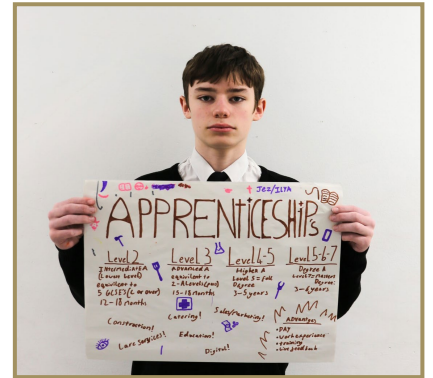 Jez/ILYA
APPRENTICESHIP's
Level 2
Intermediate A
(Lower Level)
equivlent to
5 GCSES (4 or over)
12-18 Months
Level 3
Advanced A
equivlent to
2-ALevels (pass)
15-18 Months
Level 4-5
Higher A
Level 5 = full
Degree
3-5 years
Level 5-6-7
Degree A
Level 7 = Masters
Degree:
3-6 years
Construction!
Care Services!
Catering!
Education!
Digital!
Sales/Marketing!
ADvantges
• PAY
• work experience
• training
• Live feedback